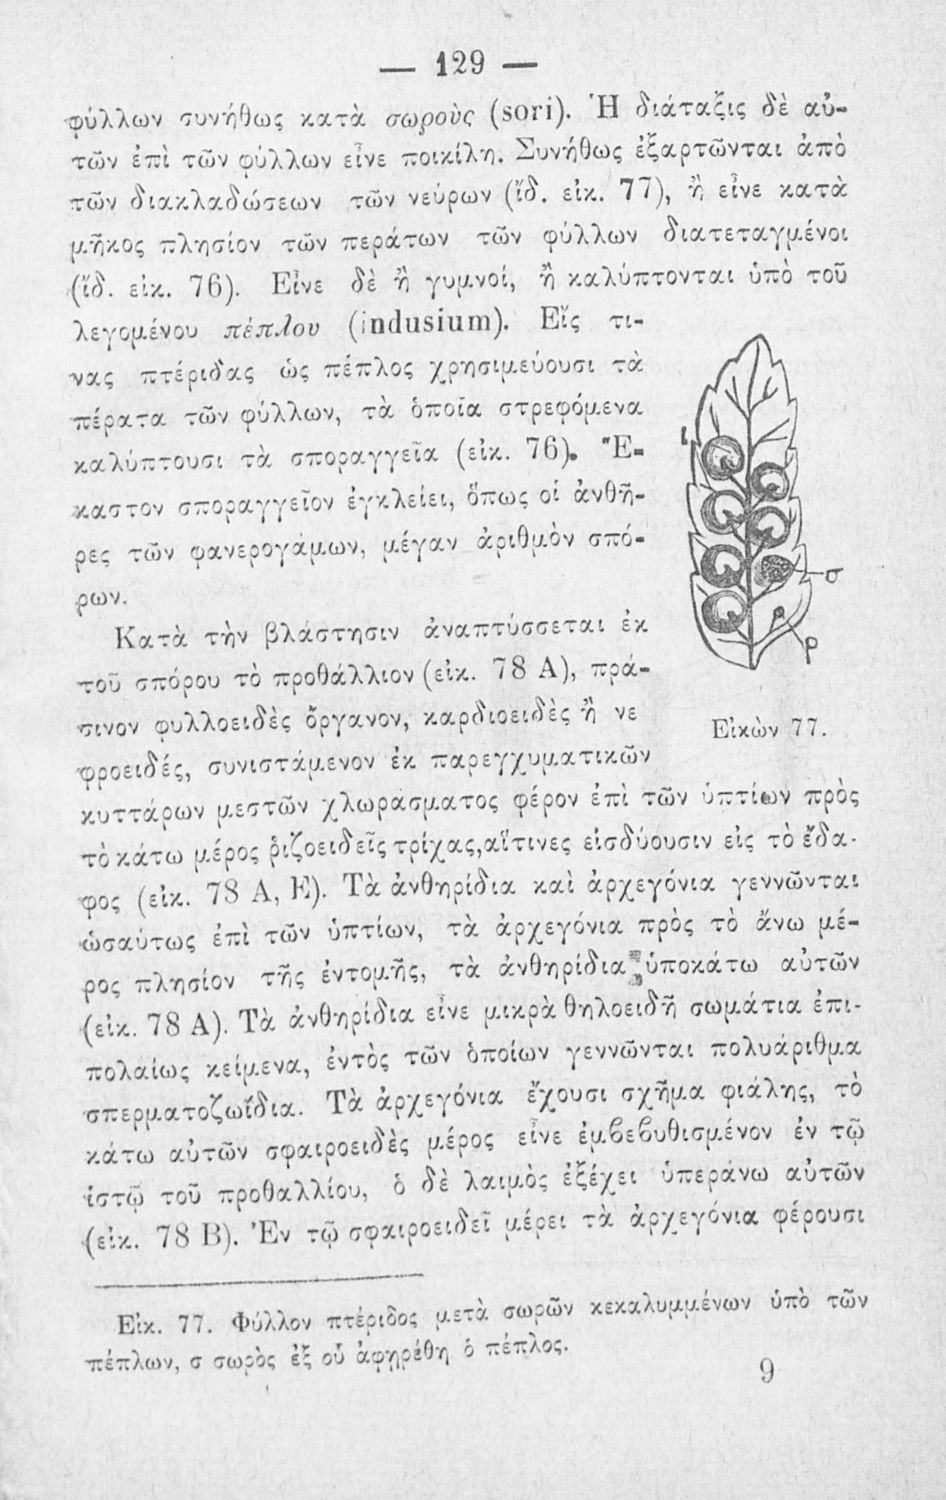 — 129 —
φύλλων συνήθως κατὰ σωροὺς (sori). Ἡ διάταξις δὲ αὐ-
τῶν ἐπὶ τῶν φύλλων εἶνε ποικίλη. Συνήθως ἐξαρτῶνται ἀπὸ
τῶν διακλαδώσεων τῶν νεύρων (ἴδ. εἰκ. 77), ἢ εἶνε κατὰ
μῆκος πλησίον τῶν περάτων τῶν φύλλων διατεταγμένοι
(ἴδ. εἰκ. 76). Εἶνε δὲ ἢ γυμνοί, ἢ καλύπτονται ὑπὸ τοῦ
λεγομένου πέπλου (indusium). Εἴς τι-
νας πτέριδας ὡς πέπλος χρησιμεύουσι τὰ
πέρατα τῶν φύλλων, τὰ ὁποῖα στρεφόμενα
καλύπτουσι τὰ σποραγγεῖα (εἰκ. 76). Ἕ-
καστον σποραγγεῖον ἐγκλείει, ὅπως οἱ ἀνθῆ-
ρες τῶν φανερογάμων, μέγαν ἀριθμὸν σπό-
ρων.
Κατὰ τὴν βλάστησιν ἀναπτύσσεται ἐκ
τοῦ σπόρου τὸ προθάλλιον (εἰκ. 78 Α), πρά-
σινον φυλλοειδὲς ὄργανον, καρδιοειδὲς ἢ νε
φροειδές, συνιστάμενον ἐκ παρεγχυματικῶν
σ
ρ
Εἰκὼν 77.
κυττάρων μεστῶν χλωράσματος φέρον ἐπὶ τῶν ὑπτίων πρὸς
τὸ κάτω μέρος ῥιζοειδεῖς τρίχας, αἵτινες εἰσδύουσιν εἰς τὸ ἔδα-
φος (εἰκ. 78 Α, Ε). Τὰ ἀνθηρίδια καὶ ἀρχεγόνια γεννῶνται
ὡσαύτως ἐπὶ τῶν ὑπτίων, τὰ ἀρχεγόνια πρὸς τὸ ἄνω μέ-
ρος πλησίον τῆς ἐντομῆς, τὰ ἀνθηρίδια ὑποκάτω αὐτῶν
(εἰκ. 78 Α). Τὰ ἀνθηρίδια εἶνε μικρὰ θηλοειδῆ σωμάτια ἐπι-
πολαίως κείμενα, ἐντὸς τῶν ὁποίων γεννῶνται πολυάριθμα
σπερματοζωΐδια. Τὰ ἀρχεγόνια ἔχουσι σχῆμα φιάλης, τὸ
κάτω αὐτῶν σφαιροειδὲς μέρος εἶνε ἐμβεβυθισμένον ἐν τῷ
ἱστῷ τοῦ προθαλλίου, ὁ δὲ λαιμὸς ἐξέχει ὑπεράνω αὐτῶν
(εἰκ. 78 Β). Ἐν τῷ σφαιροειδεῖ μέρει τὰ ἀρχεγόνια φέρουσι
Εἰκ. 77. Φύλλον πτέριδος μετὰ σωρῶν κεκαλυμμένων ὑπὸ τῶν
πέπλων, σ σωρὸς ἐξ οὗ ἀφῃρέθη ὁ πέπλος.
9